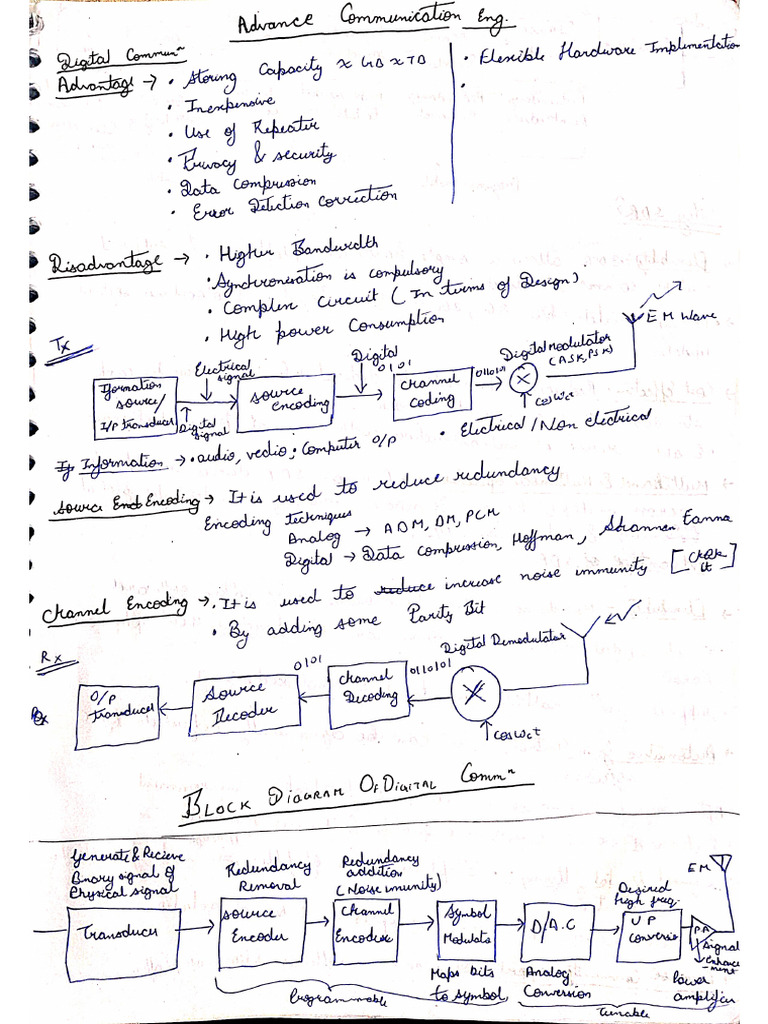 Advance Communication Eng.
Digital Commun^n
Advantage → • Storing Capacity x GB x TB
• Inexpensive
• Use of Repeater
• Privacy & security
• Data Compression
• Error Detection Correction
• Flexible Hardware Implementation
•
Disadvantage → • Higher Bandwidth
• Synchronisation is compulsory
• Complex Circuit (In terms of Design)
• High power Consumption
Tx
EM Wave
Electrical signal
Digital
0101
0110101
Digital Modulator
(ASK, PSK)
Iformation source/ I/P transducer
Digital signal
source encoding
channel coding
X
cosWct
Information → • audio, vedio, Computer O/P • Electrical/Non electrical
Source Encoding → It is used to reduce redundancy
Encoding Techniques
Analog → ADM, DM, PCM
Digital → Data compression, Hoffman, Shannan Fanna
Channel Encoding → • It is used to reduce increase noise immunity [
• By adding some Parity Bit
Rx
Digital Demodulator
O/P Transducer
Source Decoder
0101
Channel Decoding
0110101
X
cosWct
BLOCK DIAGRAM OF DIGITAL Comm^n
Generate & Recieve
Binary signal of
Physical signal
Redundancy Removal
Redundancy addition
(Noise imunity)
Desired high freq.
EM
Transducer
Source Encoder
Channel Encoder
Symbol Modulato
D/A.C
UP Conversio
P.A
Signal enhance-ment
Maps bits to symbol
Analog Conversion
Power amplifier
Programmable
Tunable